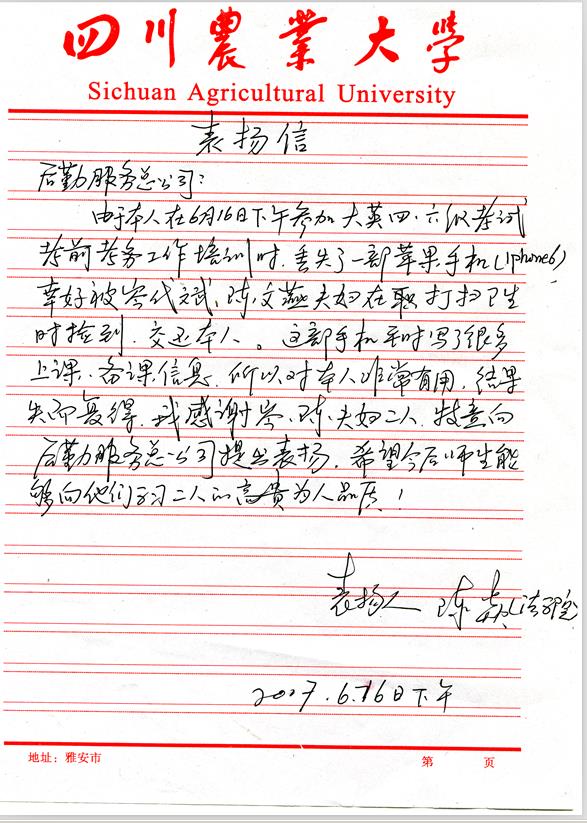 四川農業大學
Sichuan Agricultural University
表扬信
后勤服务总公司：
由于本人在6月16日下午参加大英四、六级考试
考前考务工作培训时，丢失了一部苹果手机（iphone6）
幸好被岑代文武、陈文燕夫妇在职打扫卫生
时捡到，交还本人。这部手机平时写了很多
上课、备课信息，所以对本人非常有用，结果
失而复得，我感谢岑、陈夫妇二人，特意向
后勤服务总公司提出表扬，希望今后师生能
够向他们学习二人的高贵为人品质！
表扬人 陈 （法学院
2017.6.16日下午
地址：雅安市 第 页